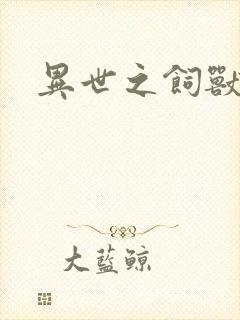 異世之飼獸
大藍鯨